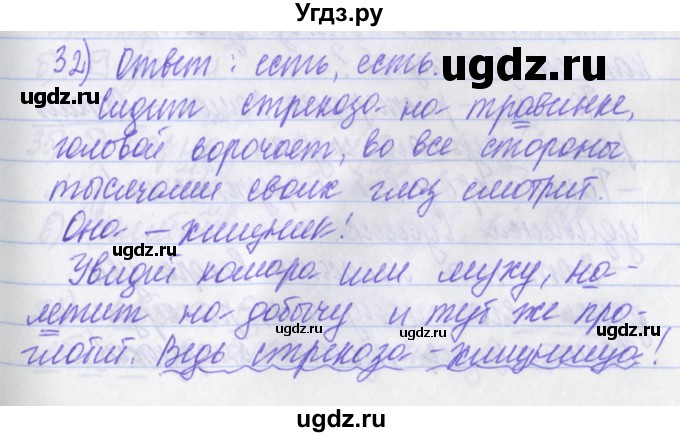 Угдз.ру
32) Ответ: есть, есть.
Сидит стрекоза на травинке,
головой ворочает, во все стороны
тысячами своих глаз смотрит.
Она – хищник!
Увидит комара или муху, на-
летит на добычу и тут же про-
глотит. Ведь стрекоза - хищница!
ugdz.ru
ugdz.ru
ugdz.ru
ugdz.ru
ugdz.ru
ugdz.ru
ugdz.ru
ugdz.ru
ugdz.ru